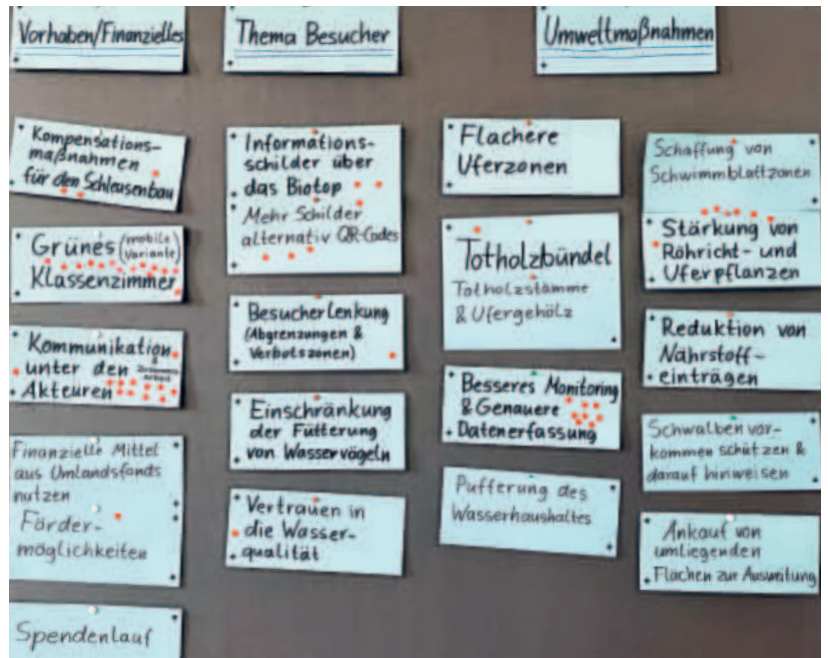 Vorhaben/Finanzielles
Kompensations-
maßnahmen
für den Schleusenbau
Grünes (mobile Variante)
Klassenzimmer
Kommunikation
unter den
Akteuren
Finanzielle Mittel
aus Umlandsfonds
nutzen
Förder-
möglichkeiten
Spendenlauf
Thema Besucher
Informations-
schilder über
das Biotop
Mehr Schilder
alternativ QR-Codes
Besucherlenkung
(Abgrenzungen &
Verbotszonen)
Einschränkung
der Fütterung
von Wasservögeln
Vertrauen in
die Wasser-
qualität
Umweltmaßnahmen
Flachere
Uferzonen
Totholzbündel
Totholzstämme
& Ufergehölz
Besseres Monitoring
& Genauere
Datenerfassung
Pufferung des
Wasserhaushaltes
Schaffung von
Schwimmblattzonen
Stärkung von
Röhricht- und
Uferpflanzen
Reduktion von
Nährstoff-
einträgen
Schwalbenvor-
kommen schützen &
darauf hinweisen
Ankauf von
umliegenden
Flächen zur Ausweitung